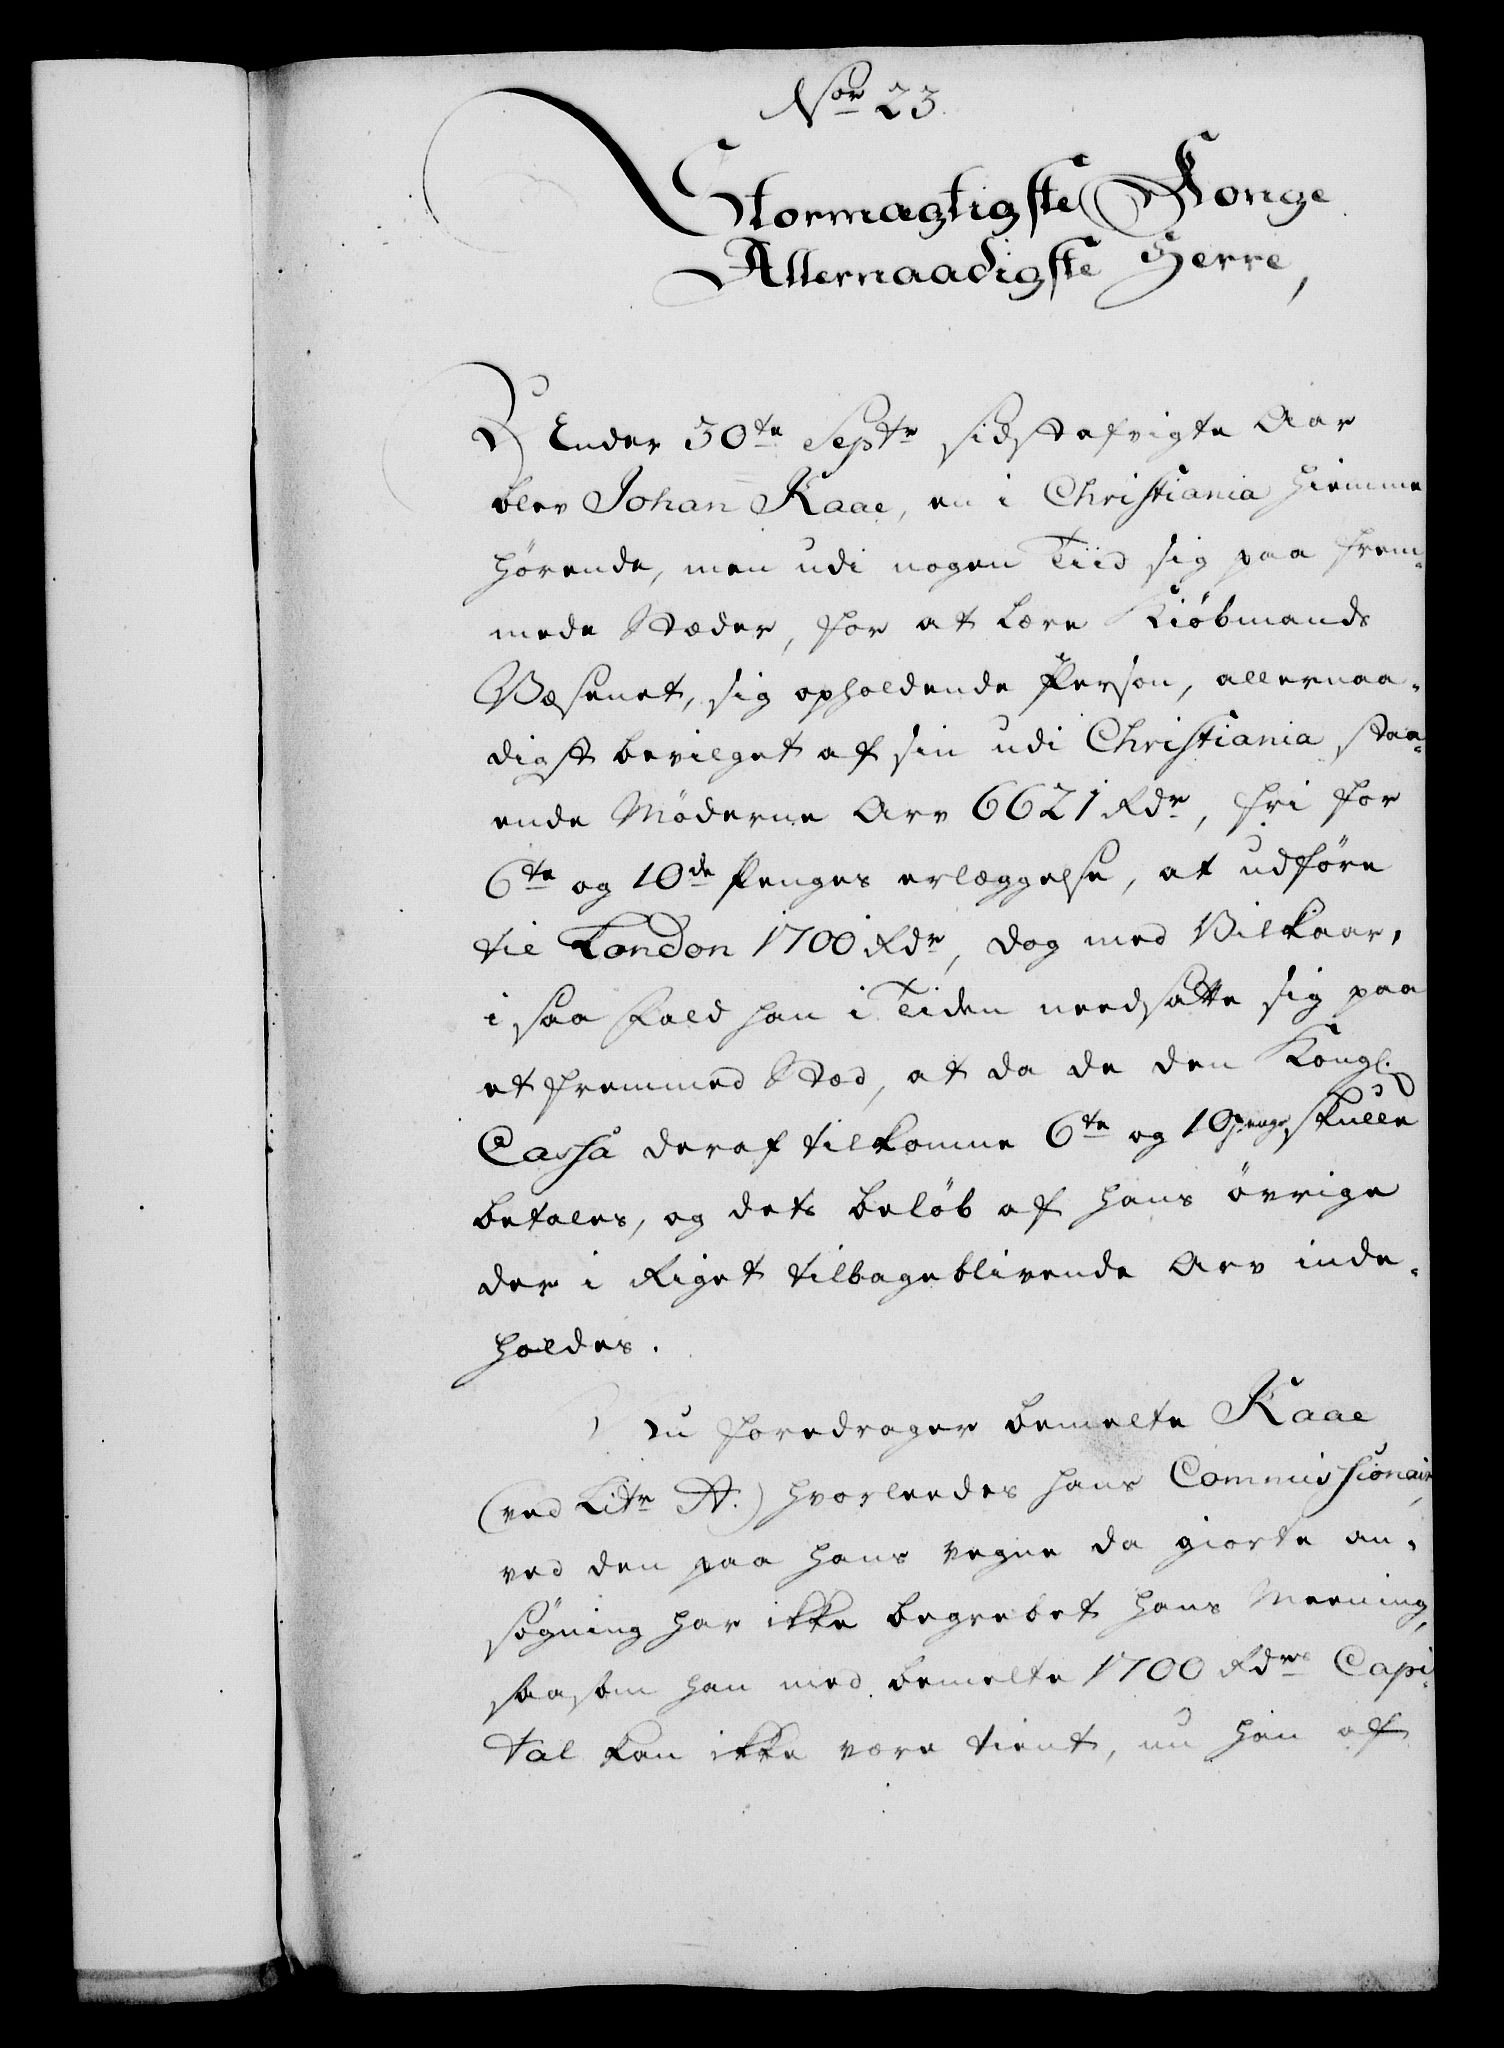 Nor 23.
Stormægtigste Konge
Allernaadigste Herre,
Under 30te Septr sidstafvigte Aar
blev Johan Kaae, en i Christiania hiemme
hørende, men udi nogen Tiid sig paa frem-
mede Stæder, for at lære Kiøbmands
Væsenet, sig opholdende Person, allernaa-
digst bevilget af sin udi Christiania staa-
ende Møderne Arv 6621 Rdr, fri for
6te og 10de Penges erlæggelse, at udføre
til London 1700 Rdr, dog med Vilkaar,
i saa Fald han i Tiden needsatte sig paa
et fremmed Stæd, at da de den Kongl.
Cassa deraf tilkomne 6te og 10penge skulle
betales, og dets beløb af hans øvrige
der i Riget tilbageblivende Arv inde-
holdes.
Nu foredrager bemelte Kaae
(ved Litr A.) hvorleedes hans Commissionair,
ved den paa hans vegne da giorte an-
søgning har ikke begrebet hans Meening,
saasom han med bemelte 1700 Rdrs Capi-
tal kan ikke være tient, nu hen af